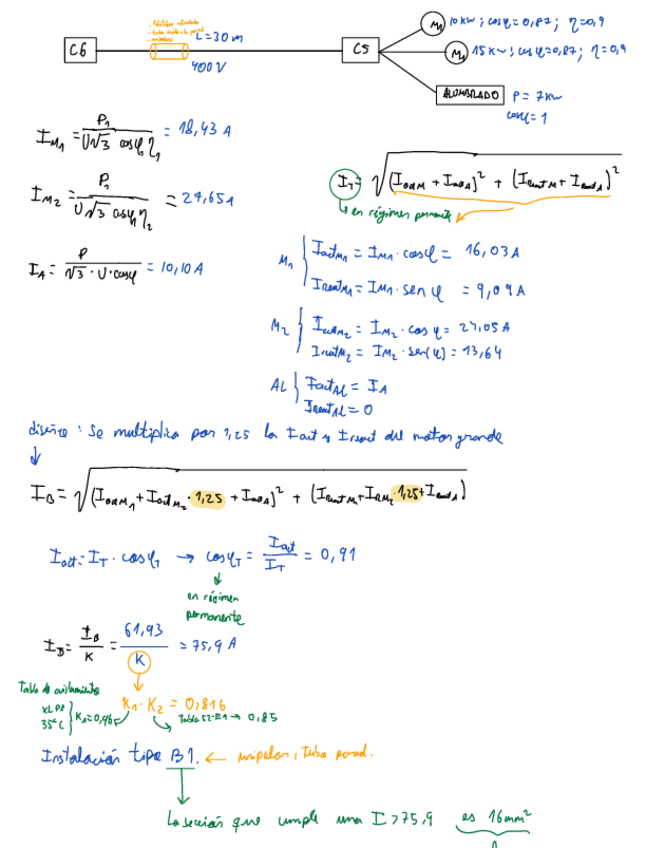 L=30m
C6
C5
400V
M₁ 10 kW ; cosφ= 0,87 ; η=0,9
M₂ 15 kW ; cosφ=0,87 ; η=0,9
ALUMBRADO P= 7kW
cosφ= 1
I_M₁ = P₁ / (U√3 cosφ₁ η₁) = 18,43 A
I_M₂ = P₁ / (U√3 cosφ₂ η₂) = 27,65A
I_T = √((I_actM + I_actA)² + (I_reactM + I_reactA)²)
↳ en régimen permanente
I_A = P / (√3 · U · cosφ) = 10,10A
M₁ { I_actM₁ = I_M₁ · cosφ = 16,03A
I_reactM₁ = I_M₁ · sen φ = 9,09A
M₂ { I_actM₂ = I_M₂ · cos φ = 24,05A
I_reactM₂ = I_M₂ · sen(φ) = 13,64
AL { I_actAL = I_A
I_reactAL = 0
Se multiplica por 1,25 la I act y I react del motor grande
I_B = √((I_actM₁ + I_actM₂ · 1,25 + I_actA)² + (I_reactM₁ + I_RM₂ · 1,25 + I_reactA)
I_act = I_T · cosφ_T → cosφ_T = I_act / I_T = 0,91
en régimen
permanente
I_B = I_B / K = 61,93 / K = 75,9 A
Tabla de aislamiento
XLPE
35°C } K₁=0,96
K₁ · K₂ = 0,816
Tabla 52-E1 → 0,85
Instalación tipo B1. ← unipolar, tubo pared.
La sección que cumple una I > 75,9 es 16mm²